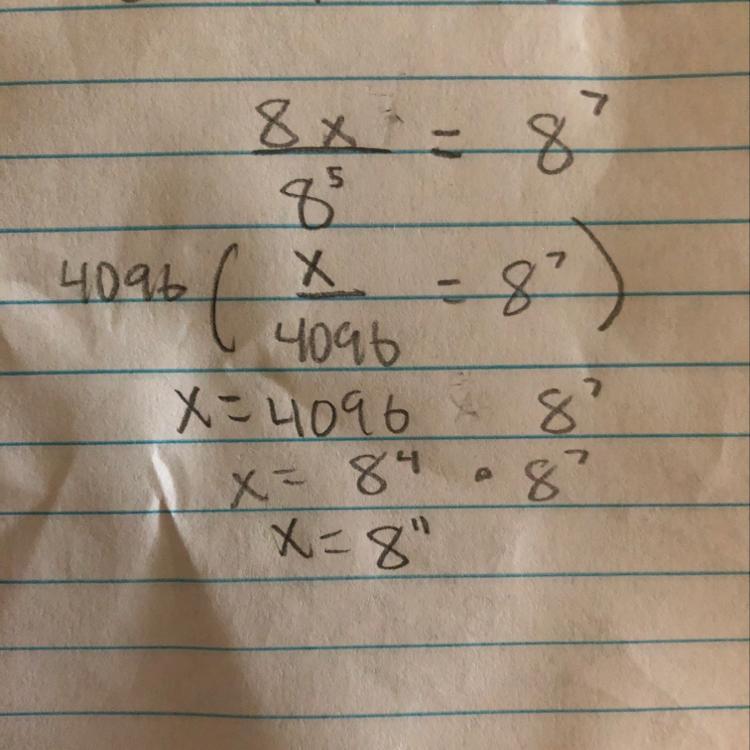 8x / 8⁵ = 8⁷
4096 ( x / 4096 = 8⁷ )
x = 4096 8⁷
x = 8⁴ · 8⁷
x = 8¹¹